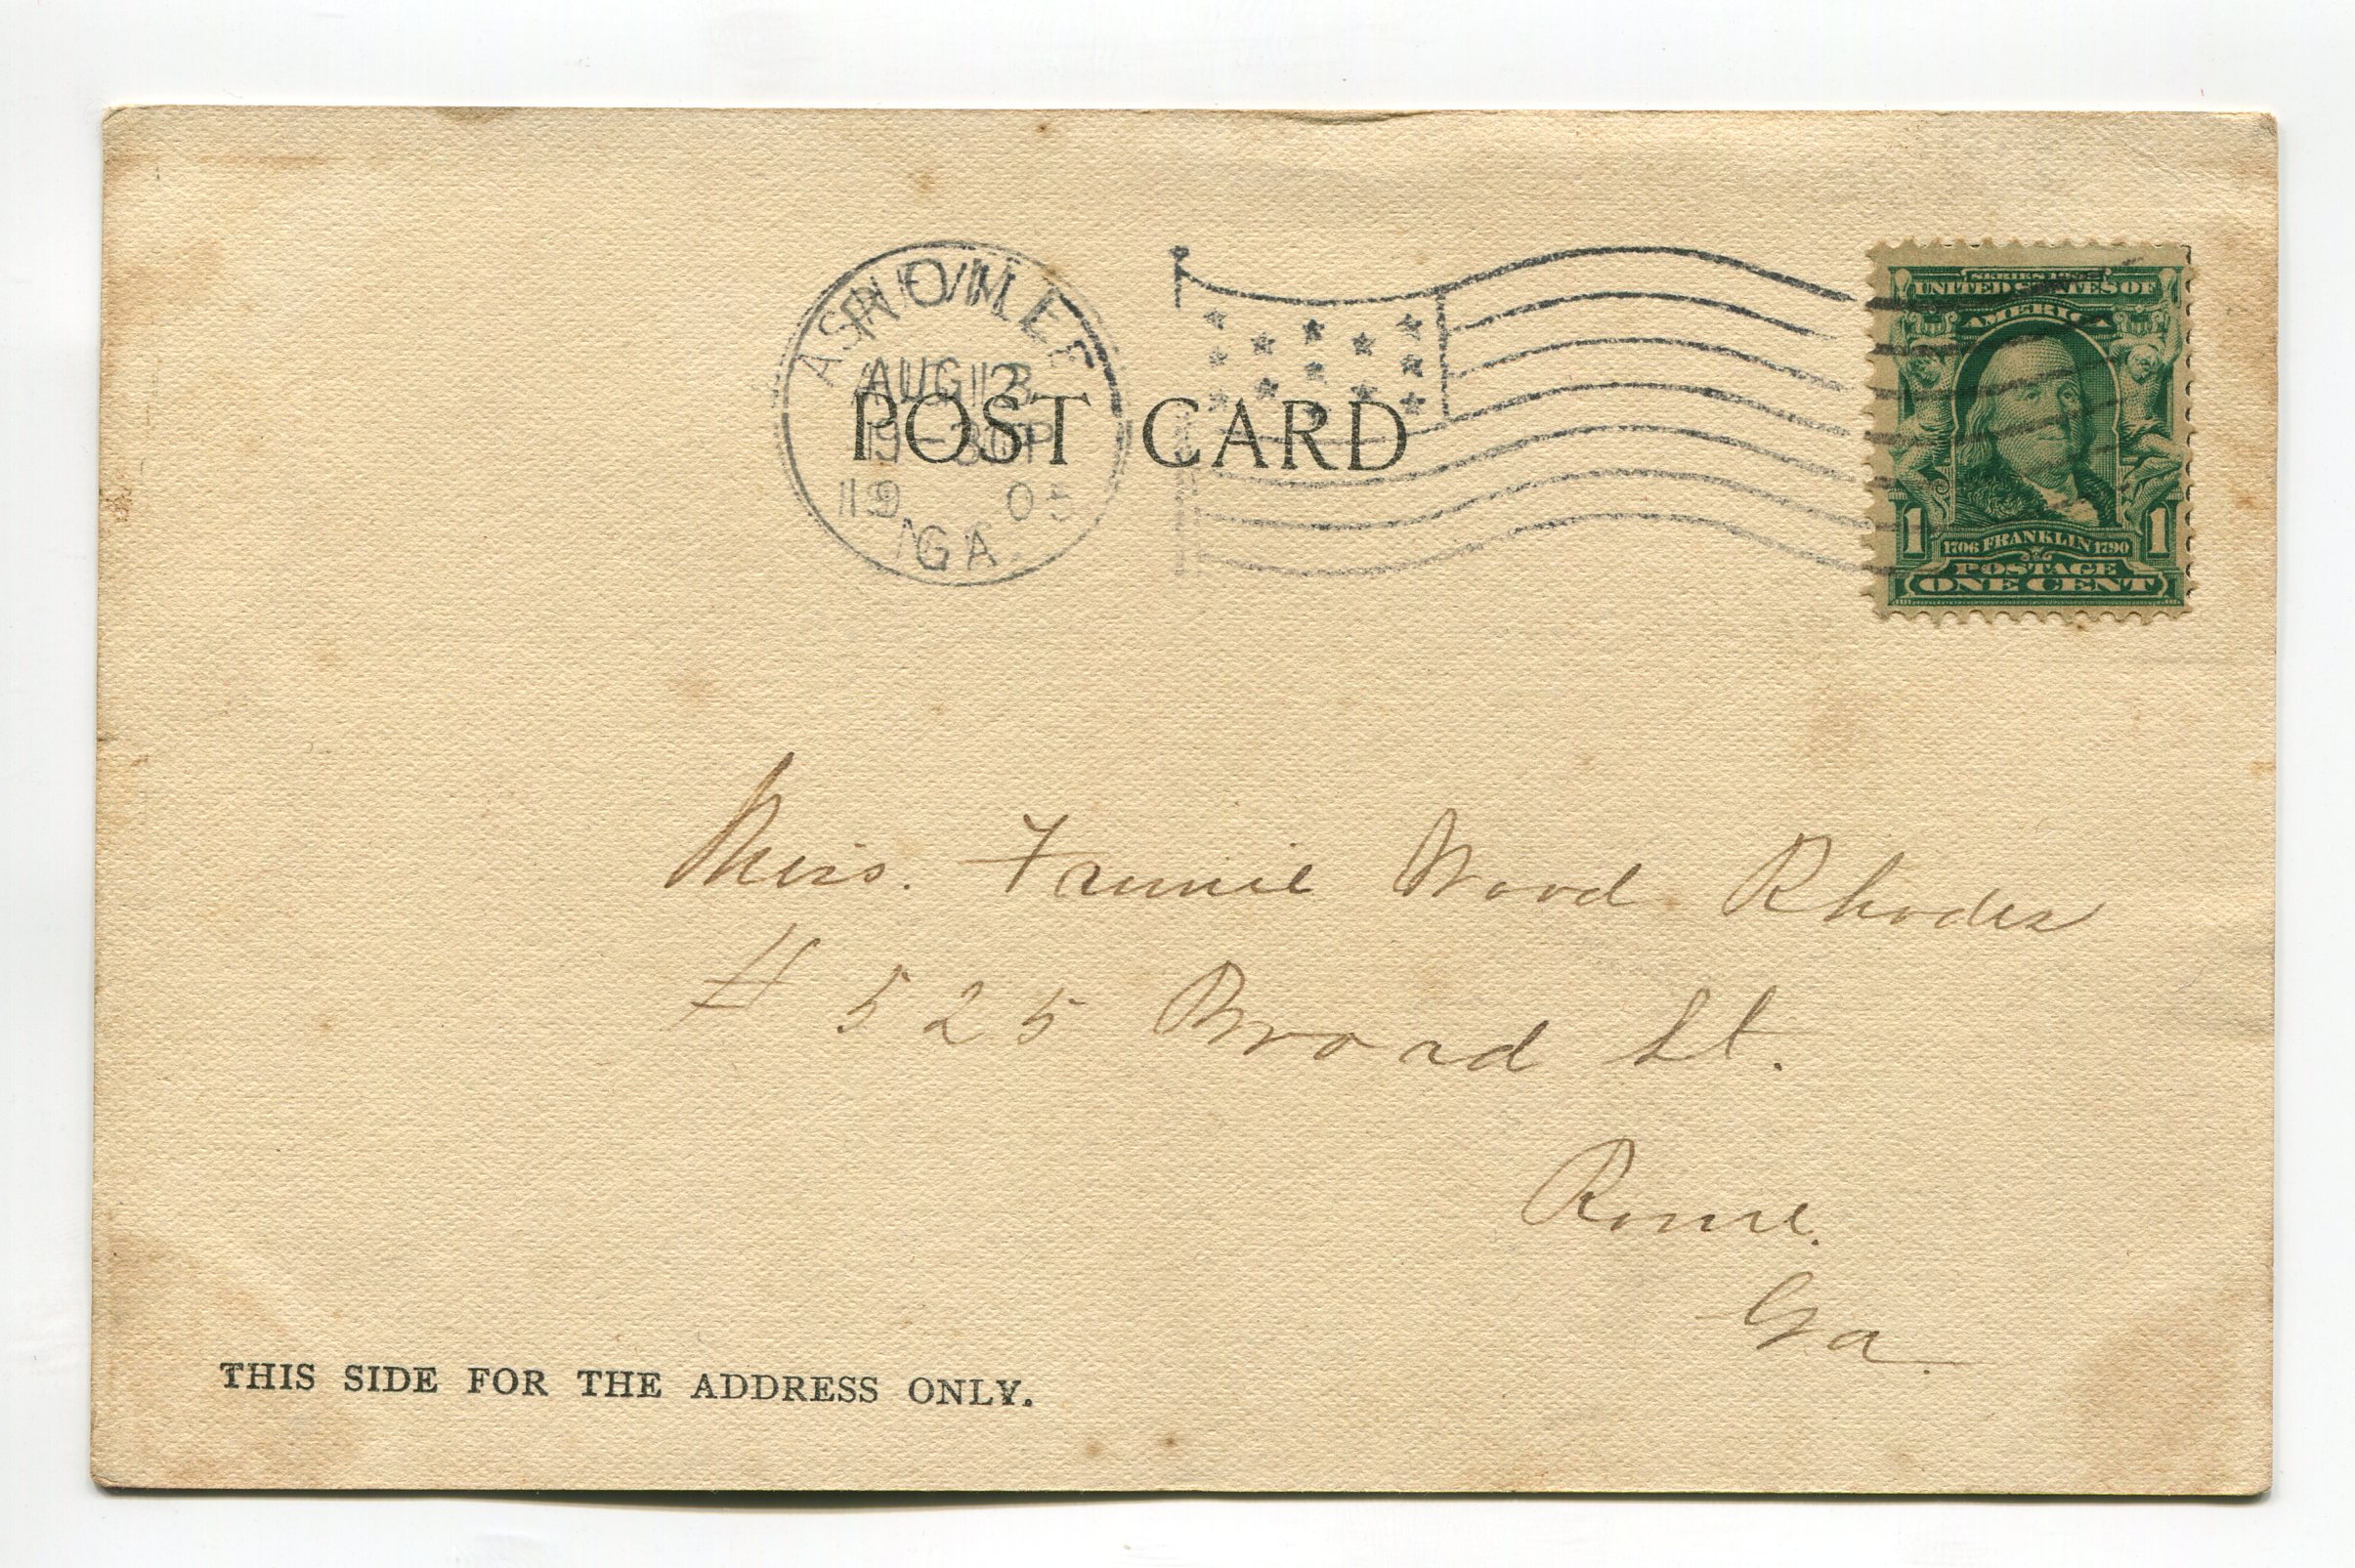 AUG
19 05
GA.
POST CARD
SERIES 1902
UNITED STATES OF
AMERICA
1 1
1706 FRANKLIN 1790
POSTAGE
ONE CENT
Miss. Fannie Wood Rhodes
# 525 Broad St.
Rome.
Ga.
THIS SIDE FOR THE ADDRESS ONLY.